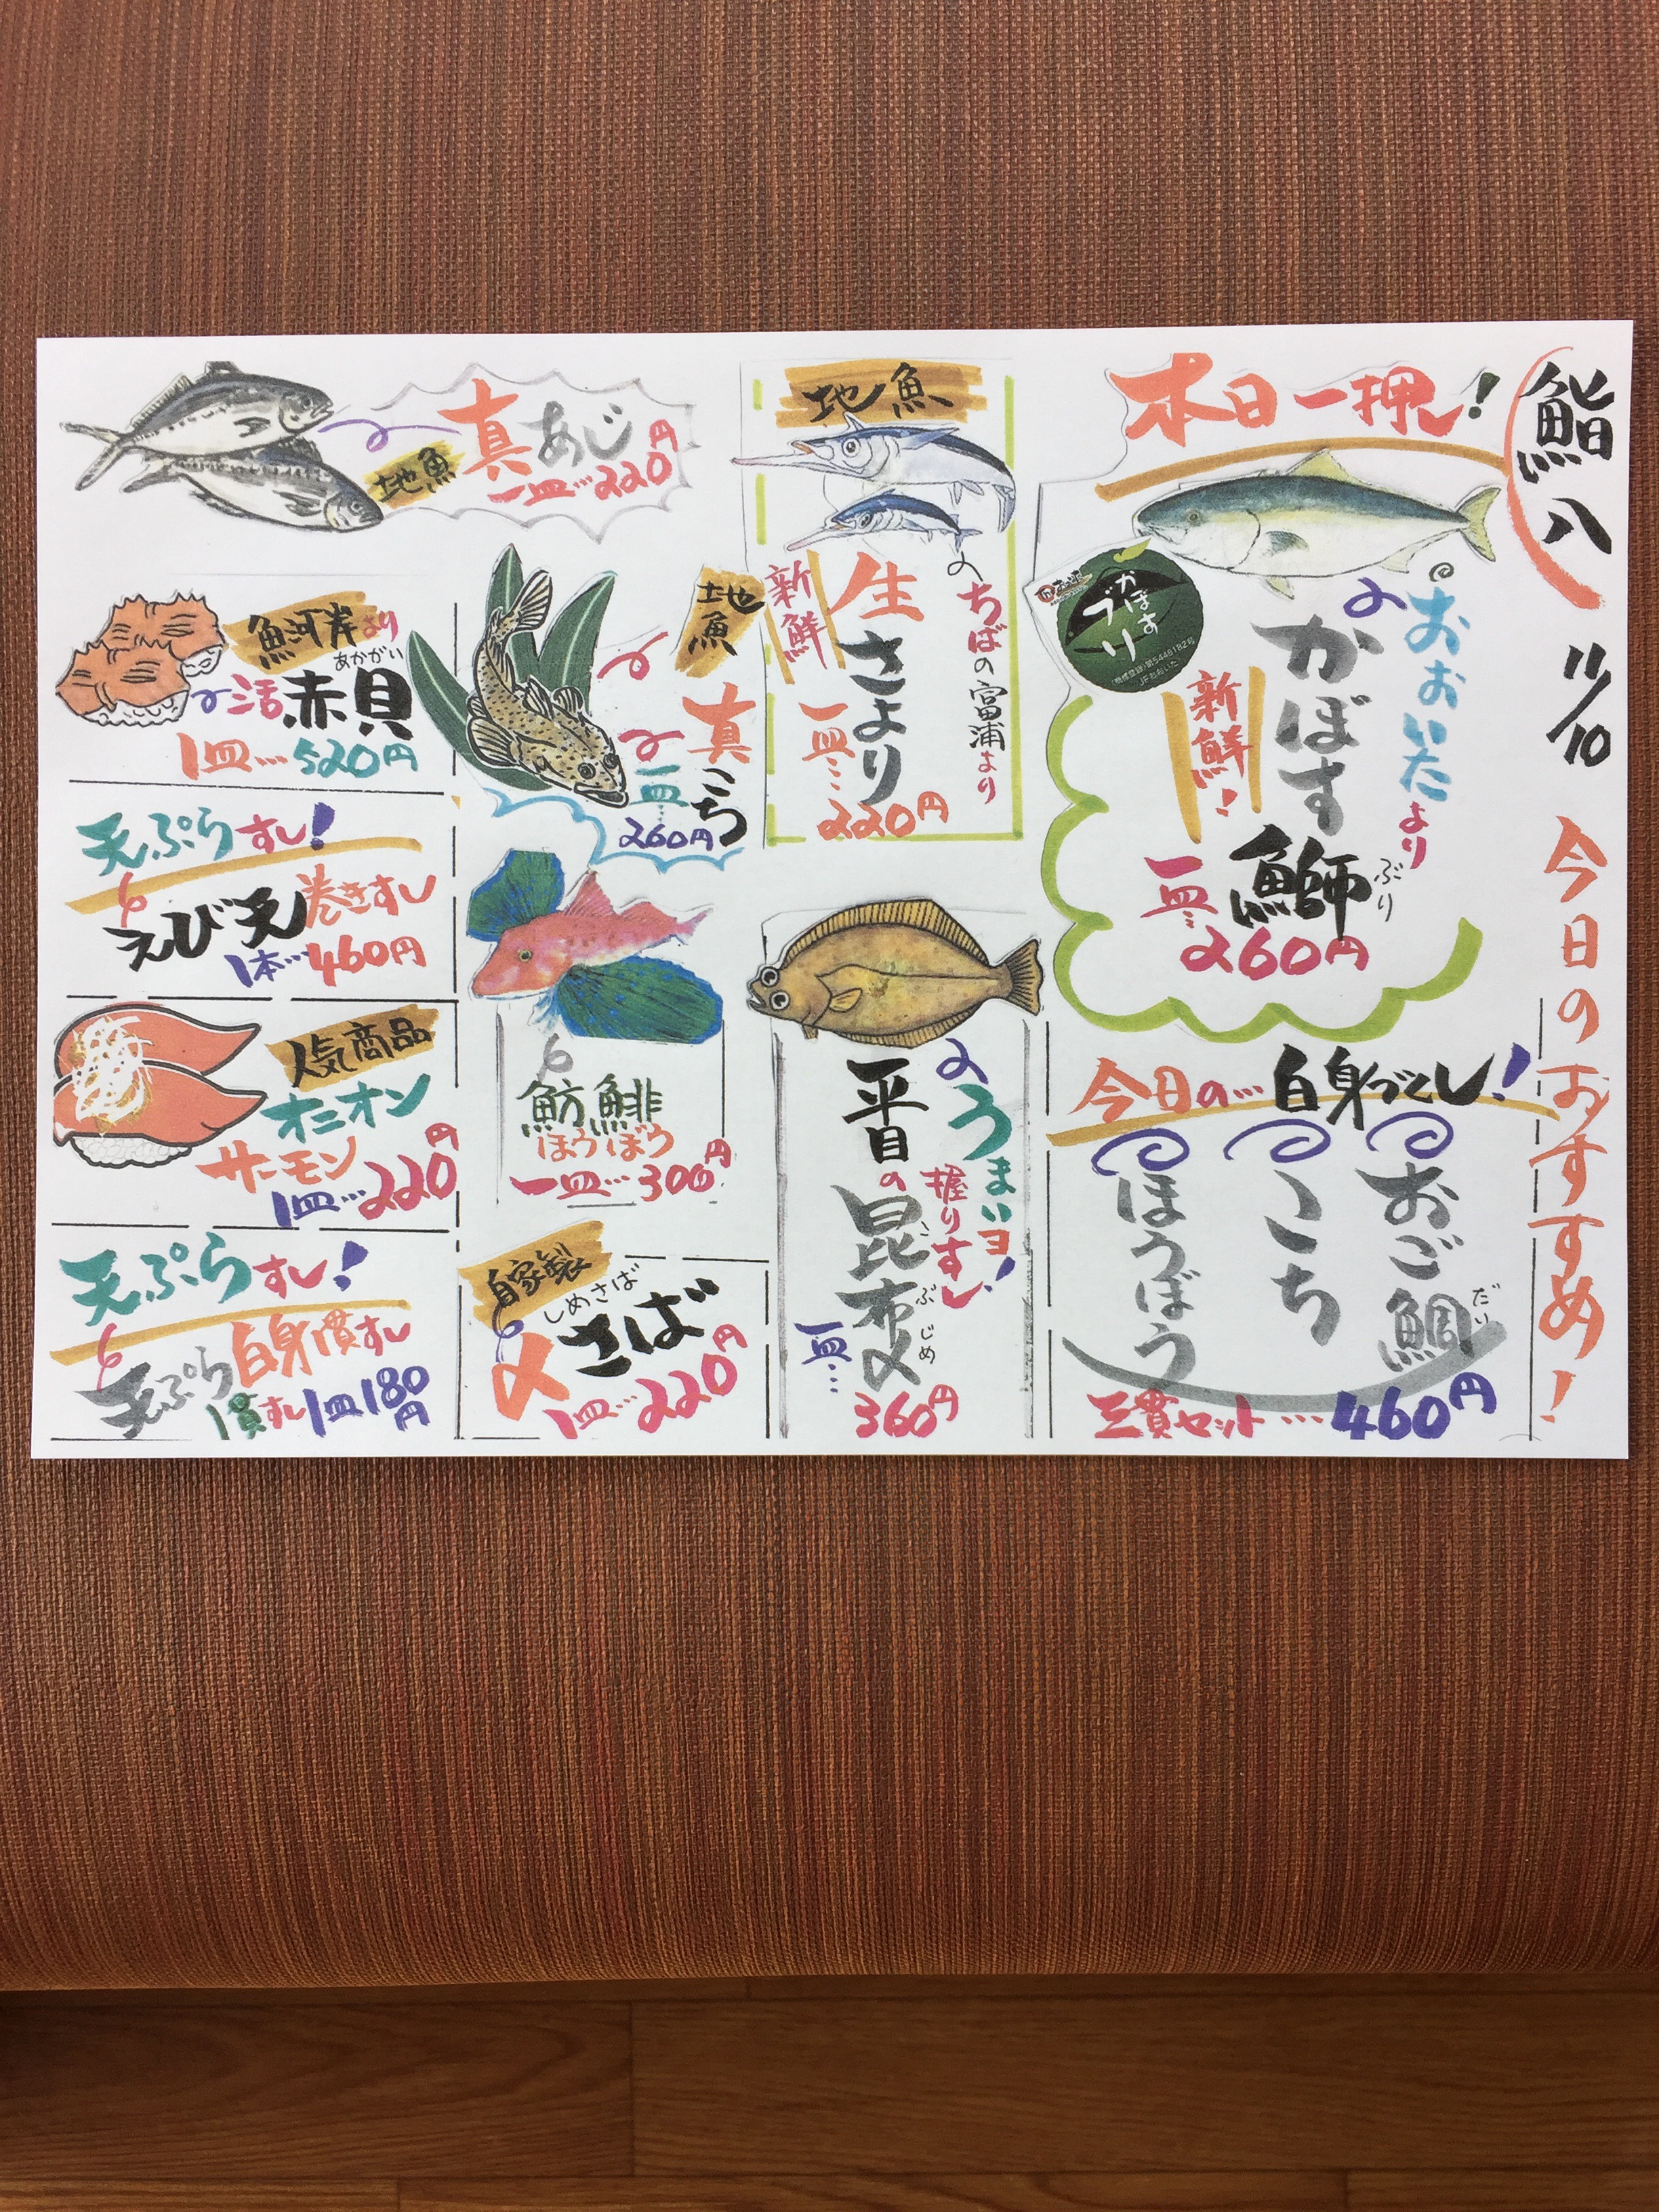 鮨八
11/10
今日のおすすめ!
本日一押し!
おおいたより
かぼす
鰤
ぶり
新鮮!
一皿…
260円
かぼす
ブリ
JFおおいた
今日の…白身づくし!
おご鯛
だい
こち
ほうぼう
三貫セット…460円
地魚
ちばの富浦より
生さより
新鮮
一皿…
220円
うまいヨ!
握りすし
平目の
昆布〆
こぶじめ
一皿…
360円
地魚
真あじ
一皿…220円
地魚
真こち
一皿…
260円
魴鮄
ほうぼう
一皿…300円
自家製
しめさば
〆さば
1皿…220円
魚河岸より
あかがい
活赤貝
1皿…520円
天ぷらすし!
えび天巻きすし
1本…460円
人気商品
オニオン
サーモン
1皿…220円
天ぷらすし!
天ぷら白身1貫すし
1貫すし1皿180円